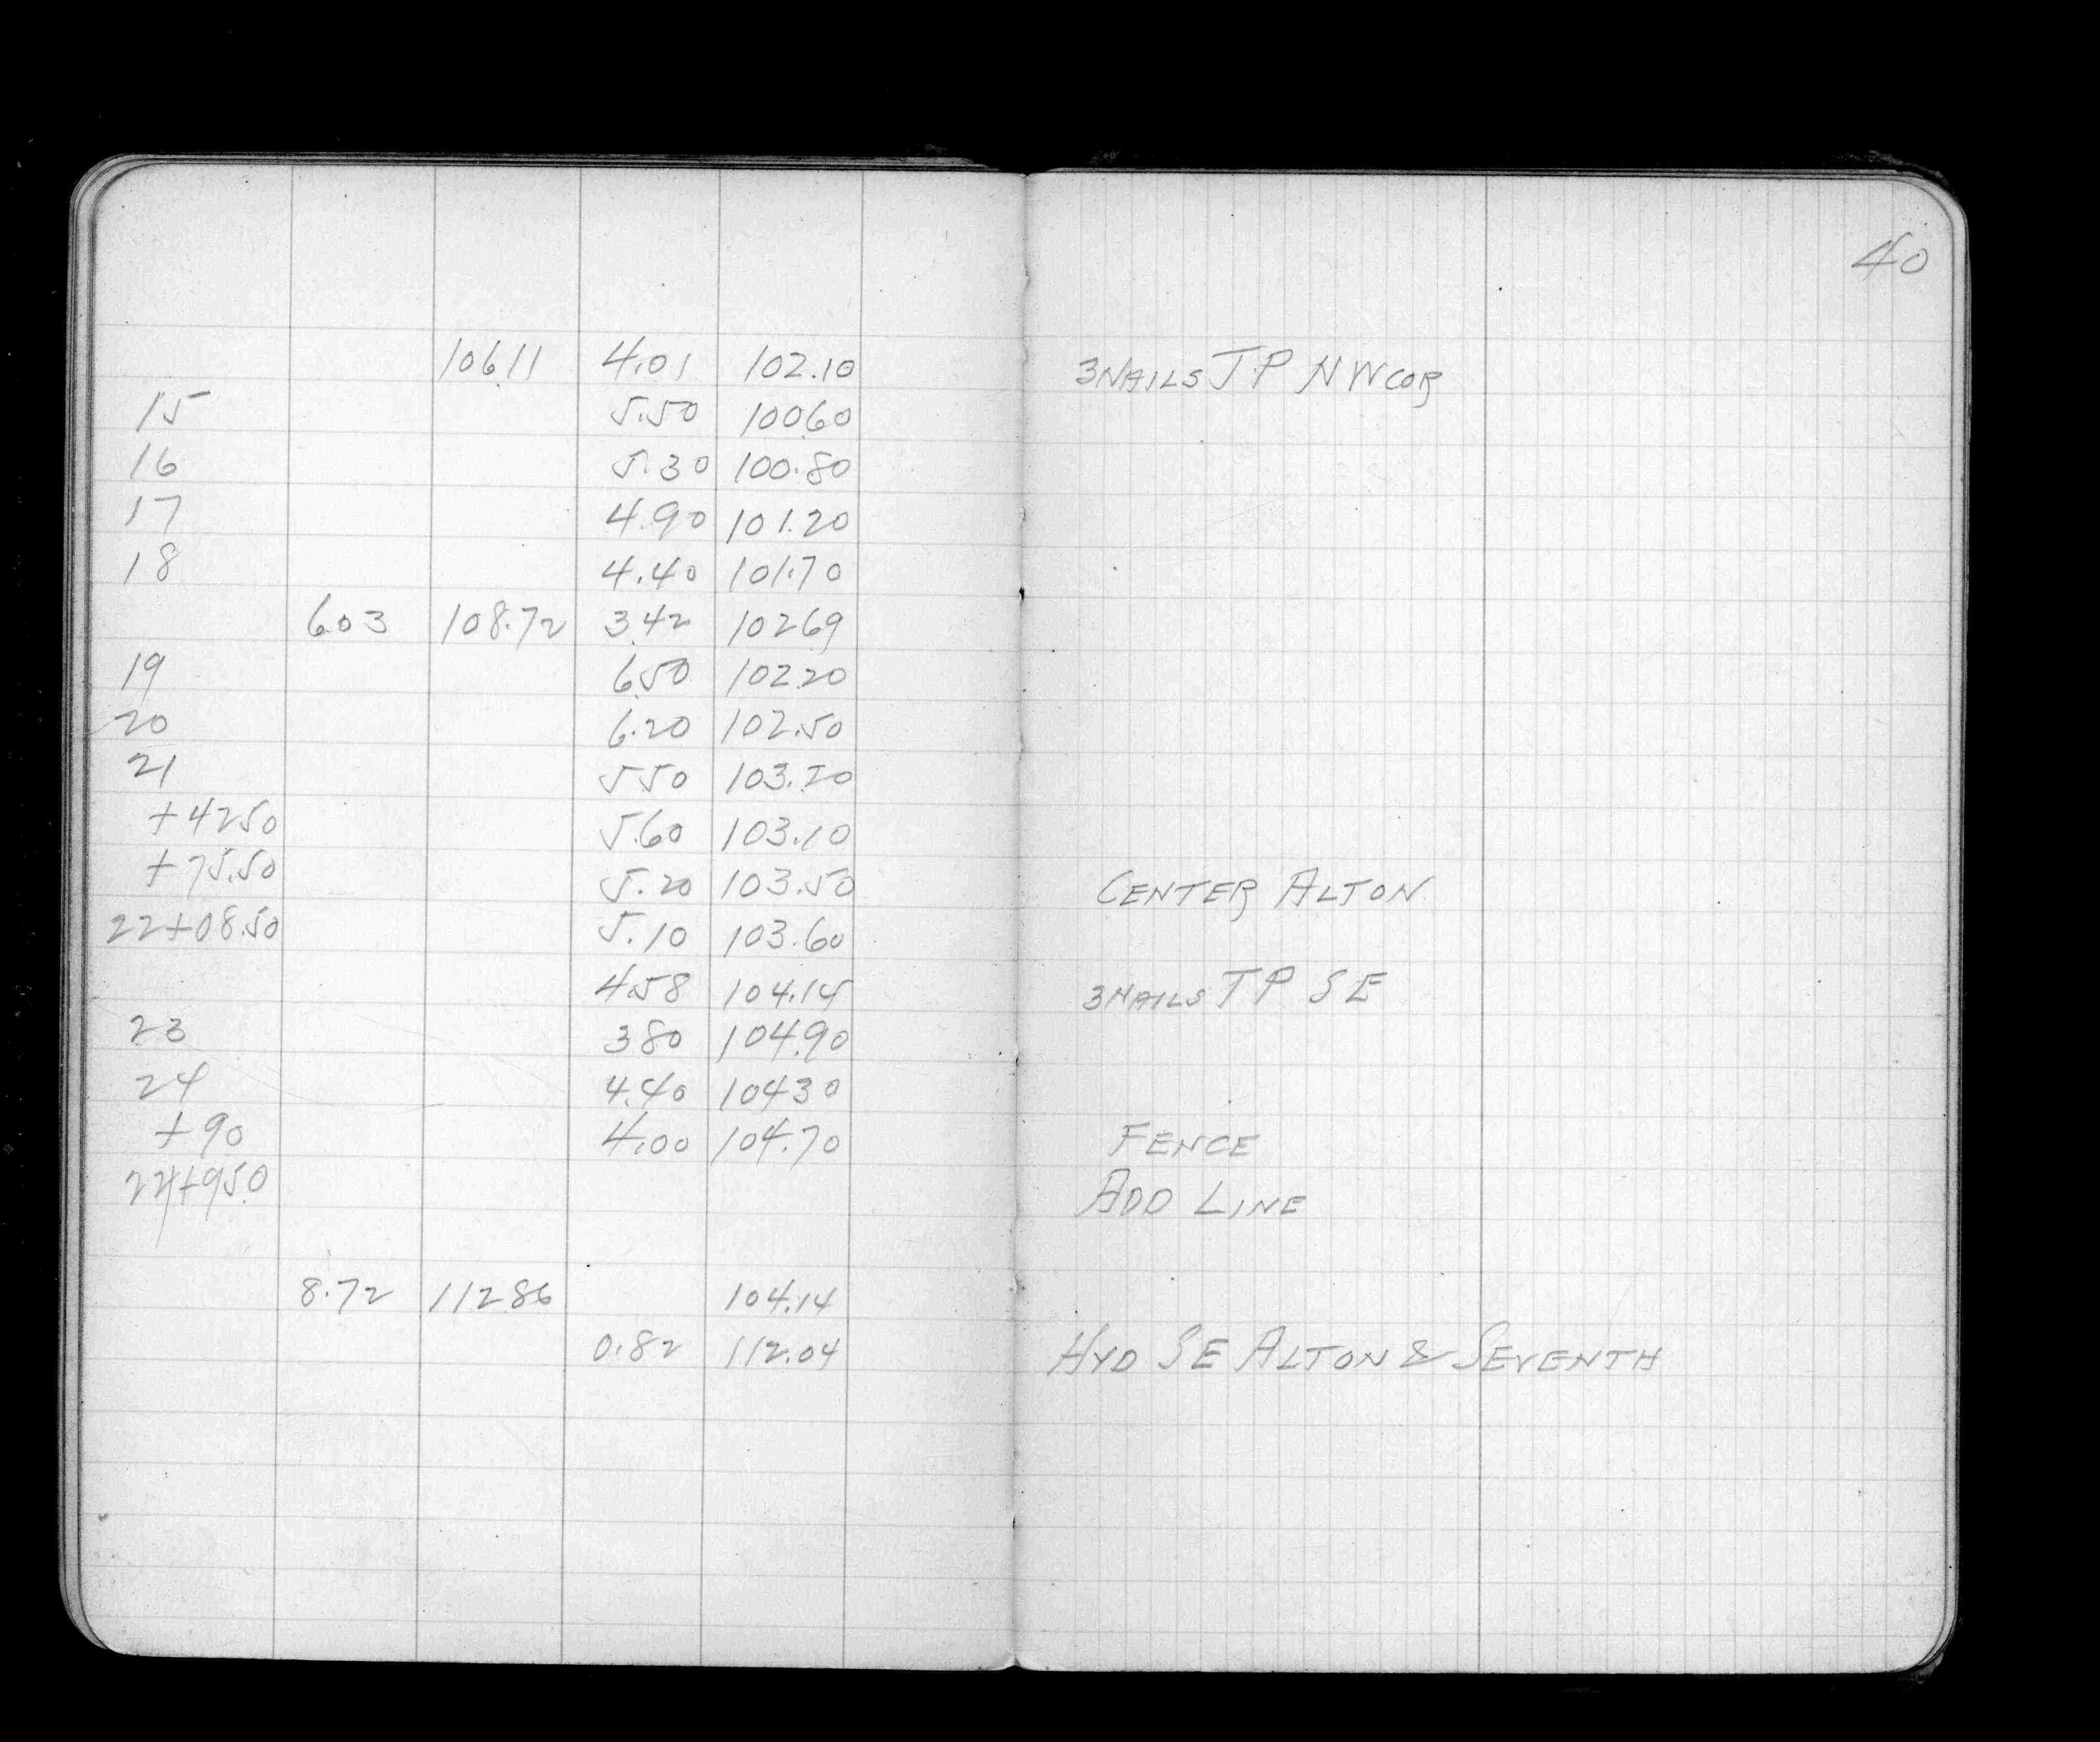 40
106.11 4.01 102.10 3 NAILS T.P NW COR
15 5.50 100.60
16 5.30 100.80
17 4.90 101.20
18 4.40 101.70
6.03 108.72 3.42 102.69
19 6.50 102.20
20 6.20 102.50
21 5.50 103.20
+42.50 5.60 103.10
+75.50 5.20 103.50 CENTER ALTON
22+08.50 5.10 103.60
4.58 104.14 3 NAILS TP SE
23 3.80 104.90
24 4.40 104.30
+90 4.00 104.70 FENCE
+95.0 ADD LINE
8.72 112.86 104.14
0.82 112.04 HYD SE ALTON & SEVENTH